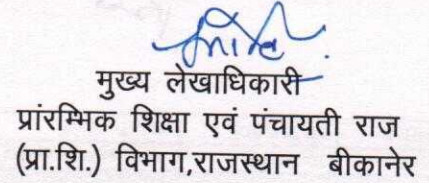 मुख्य लेखाधिकारी
प्रांरम्भिक शिक्षा एवं पंचायती राज
(प्रा.शि.) विभाग,राजस्थान बीकानेर